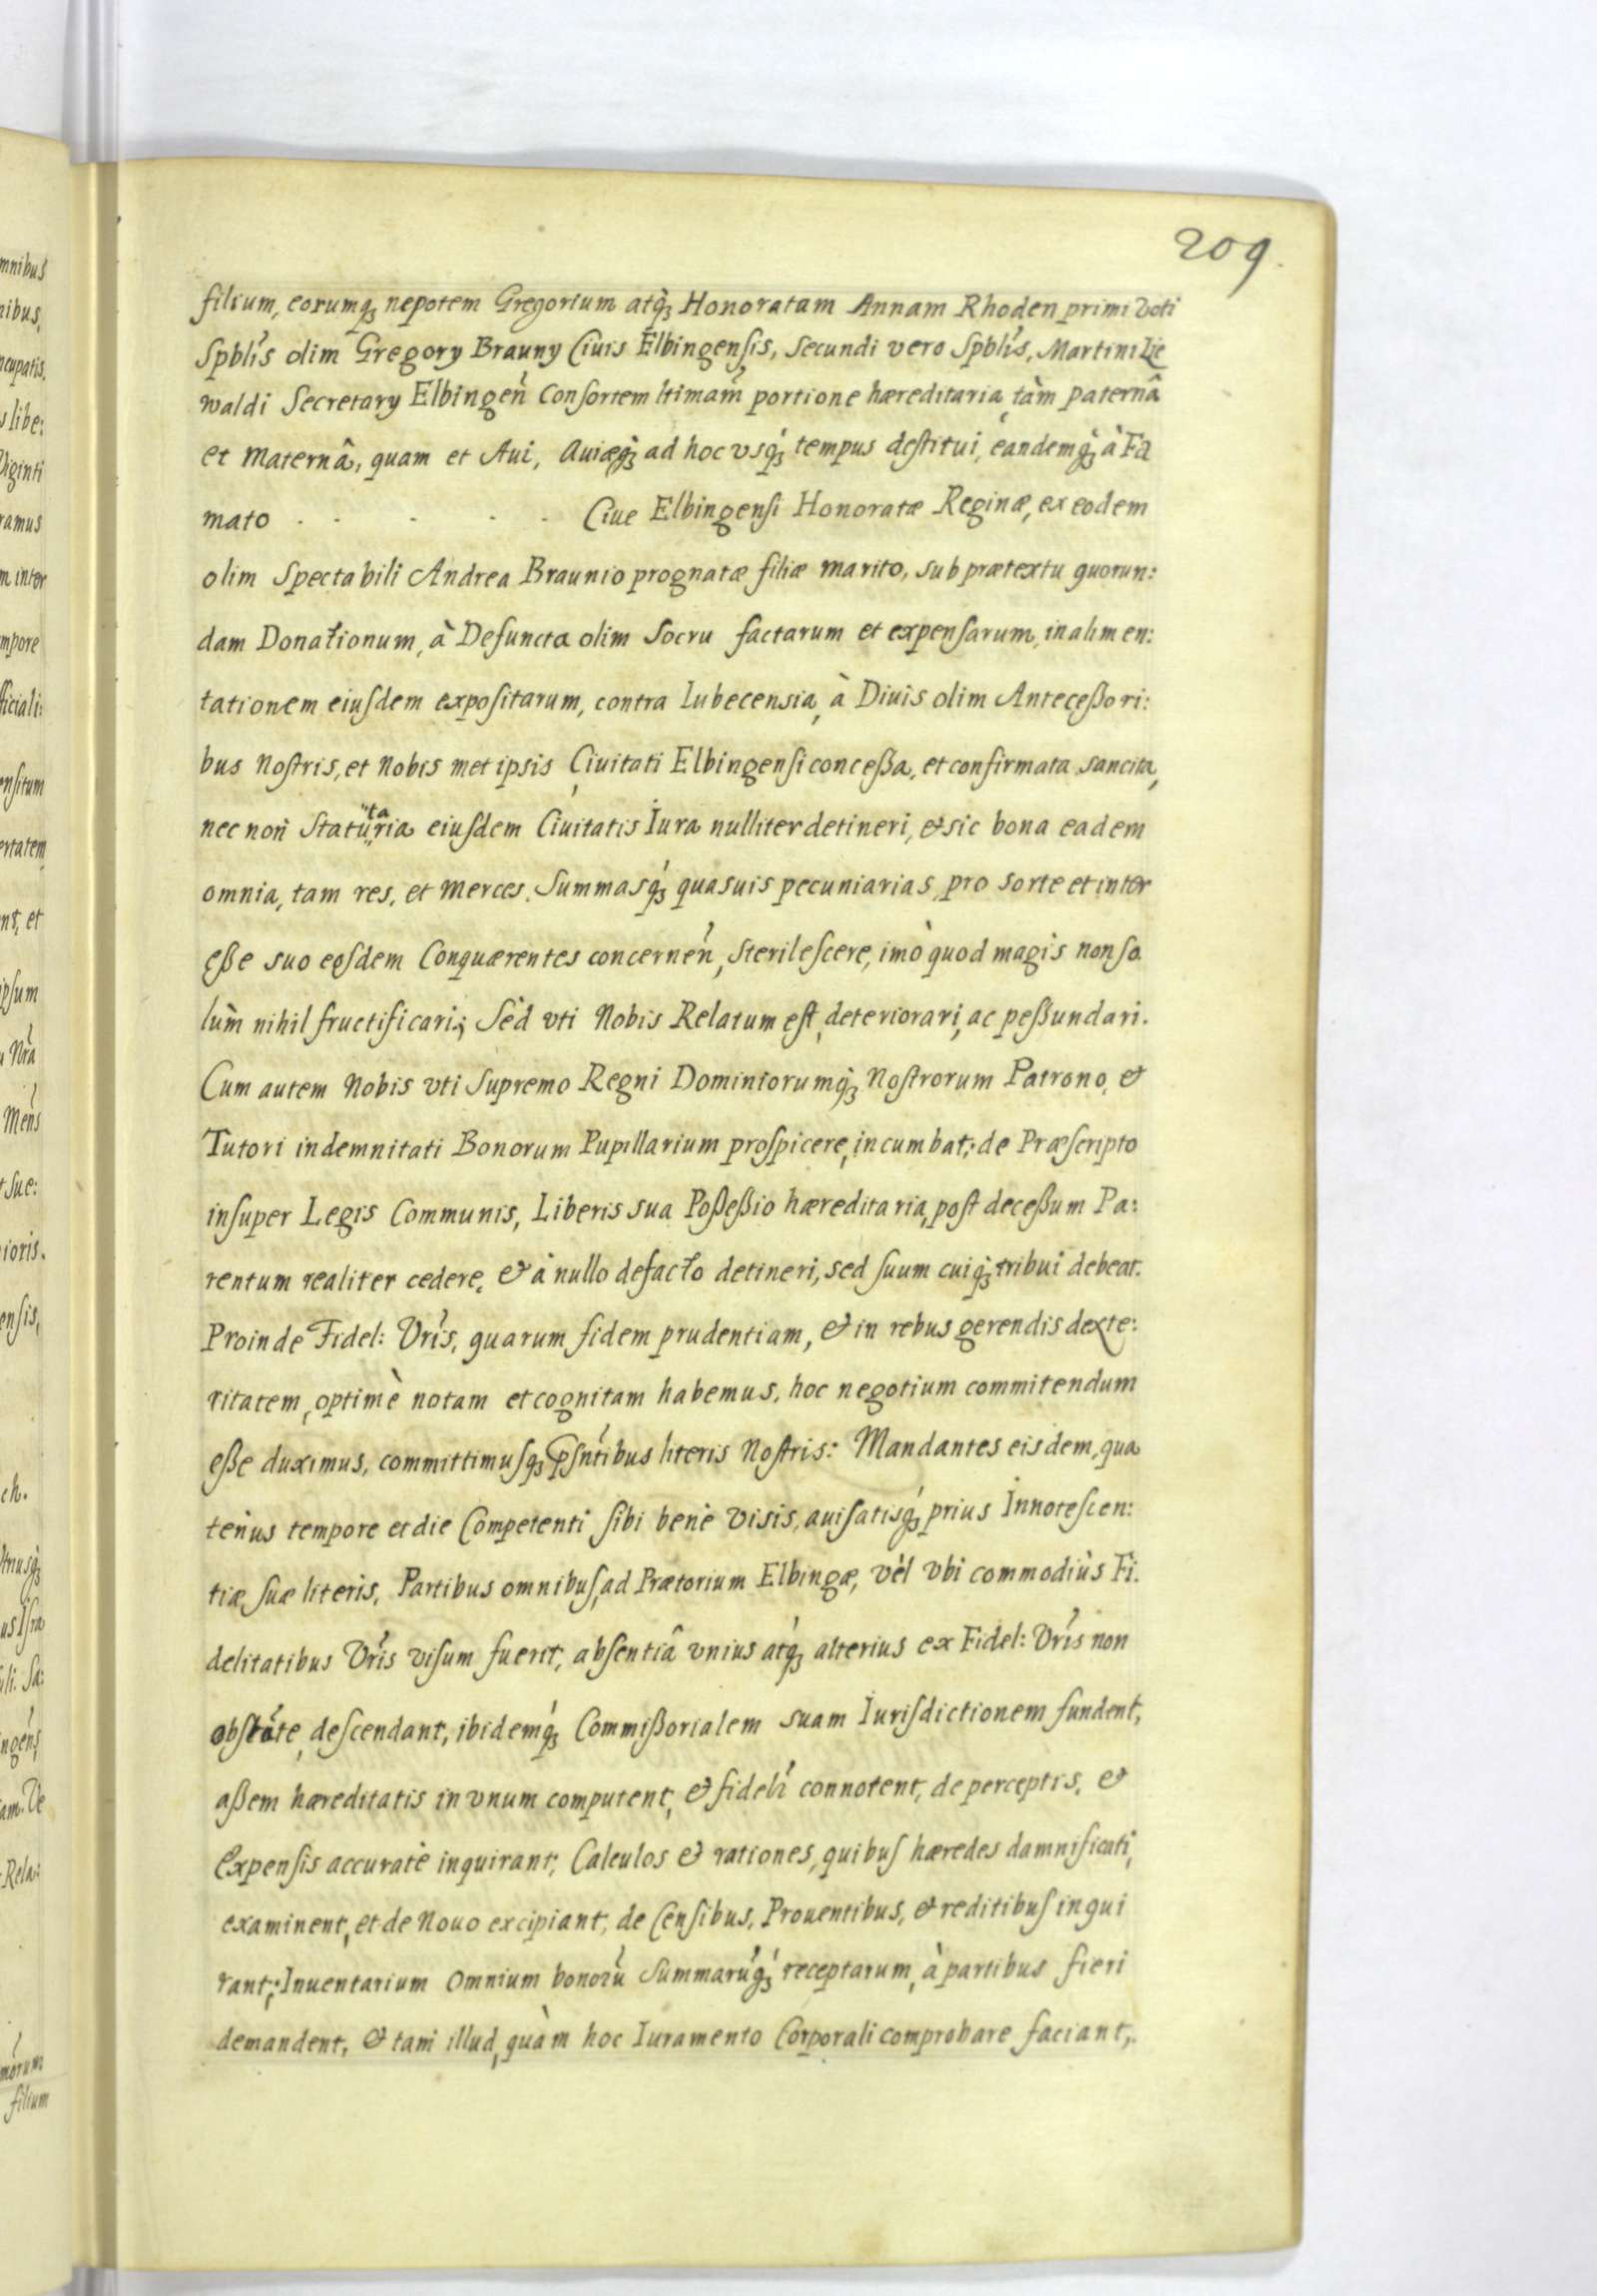 209.
filium, eorumq; nepotem Gregorium atq; Honoratam Annam Rhoden primi voti
Spblis olim Gregory Brauny Civis Elbingensis, secundi vero Spblis, Martini Lie
waldi Secretary Elbingen Consortem ltimam portione hæreditaria, tàm paternâ
et Maternâ, quam et Avi, Aviæq; ad hoc usq; tempus destitui, eandemq; à Fa
mato . . . . . Cive Elbingensi Honoratæ Reginæ, ex eodem
olim Spectabili Andrea Braunio prognatæ filiæ marito, sub prætextu quorun:
dam Donationum, à Defuncta olim Socru factarum et expensarum, in alimen:
tationem eiusdem expositarum, contra Lubecensia, à Divis olim Anteceßori:
bus Nostris, et Nobis met ipsis Civitati Elbingensi conceßa, et confirmata sancita,
nec non Statutaria eiusdem Civitatis Iura nulliter detineri, & sic bona eadem
omnia, tam res, et merces, Summasq; quasvis pecuniarias, pro sorte et inter
eße suo eosdem Conquærentes concernen, sterilescere, imò quod magis non so
lùm nihil fructificari; Sèd uti Nobis Relatum est, deteriorari, ac peßundari.
Cum autem Nobis uti Supremo Regni Dominiorumq; Nostrorum Patrono, &
Tutori indemnitati Bonorum Pupillarium prospicere, incumbat; de Præscripto
insuper Legis Communis, Liberis sua Poßeßio hæreditaria, post deceßum Pa:
rentum realiter cedere, & à nullo defacto detineri, sed suum cuiq; tribui debeat.
Proinde Fidel: Vris, quarum fidem prudentiam, & in rebus gerendis dexte:
ritatem, optimè notam et cognitam habemus, hoc negotium commitendum
eße duximus, committimusq; psntibus literis Nostris: Mandantes eisdem, qua
tenus tempore et die Competenti sibi benè visis, avisatisq; prius Innotescen:
tiæ suæ literis, Partibus omnibus, ad Prætorium Elbingæ, vèl ubi commodiùs Fi.
delitatibus Vris visum fuerit, absentiâ unius atq; alterius ex Fidel: Vris non
obstãte, descendant, ibidemq; Commißorialem suam Iurisdictionem fundent,
aßem hæreditatis in unum computent, & fideli connotent, de perceptis, &
Expensis accuratè inquirant, Calculos & rationes, quibus hæredes damnificati,
examinent, et de Novo excipiant, de Censibus, Proventibus, & reditibus inqui
rant; Inventarium Omnium bonorũ Summarũq; receptarum, à partibus fieri
demandent, & tam illud, quàm hoc Iuramento Corporali comprobare faciant,